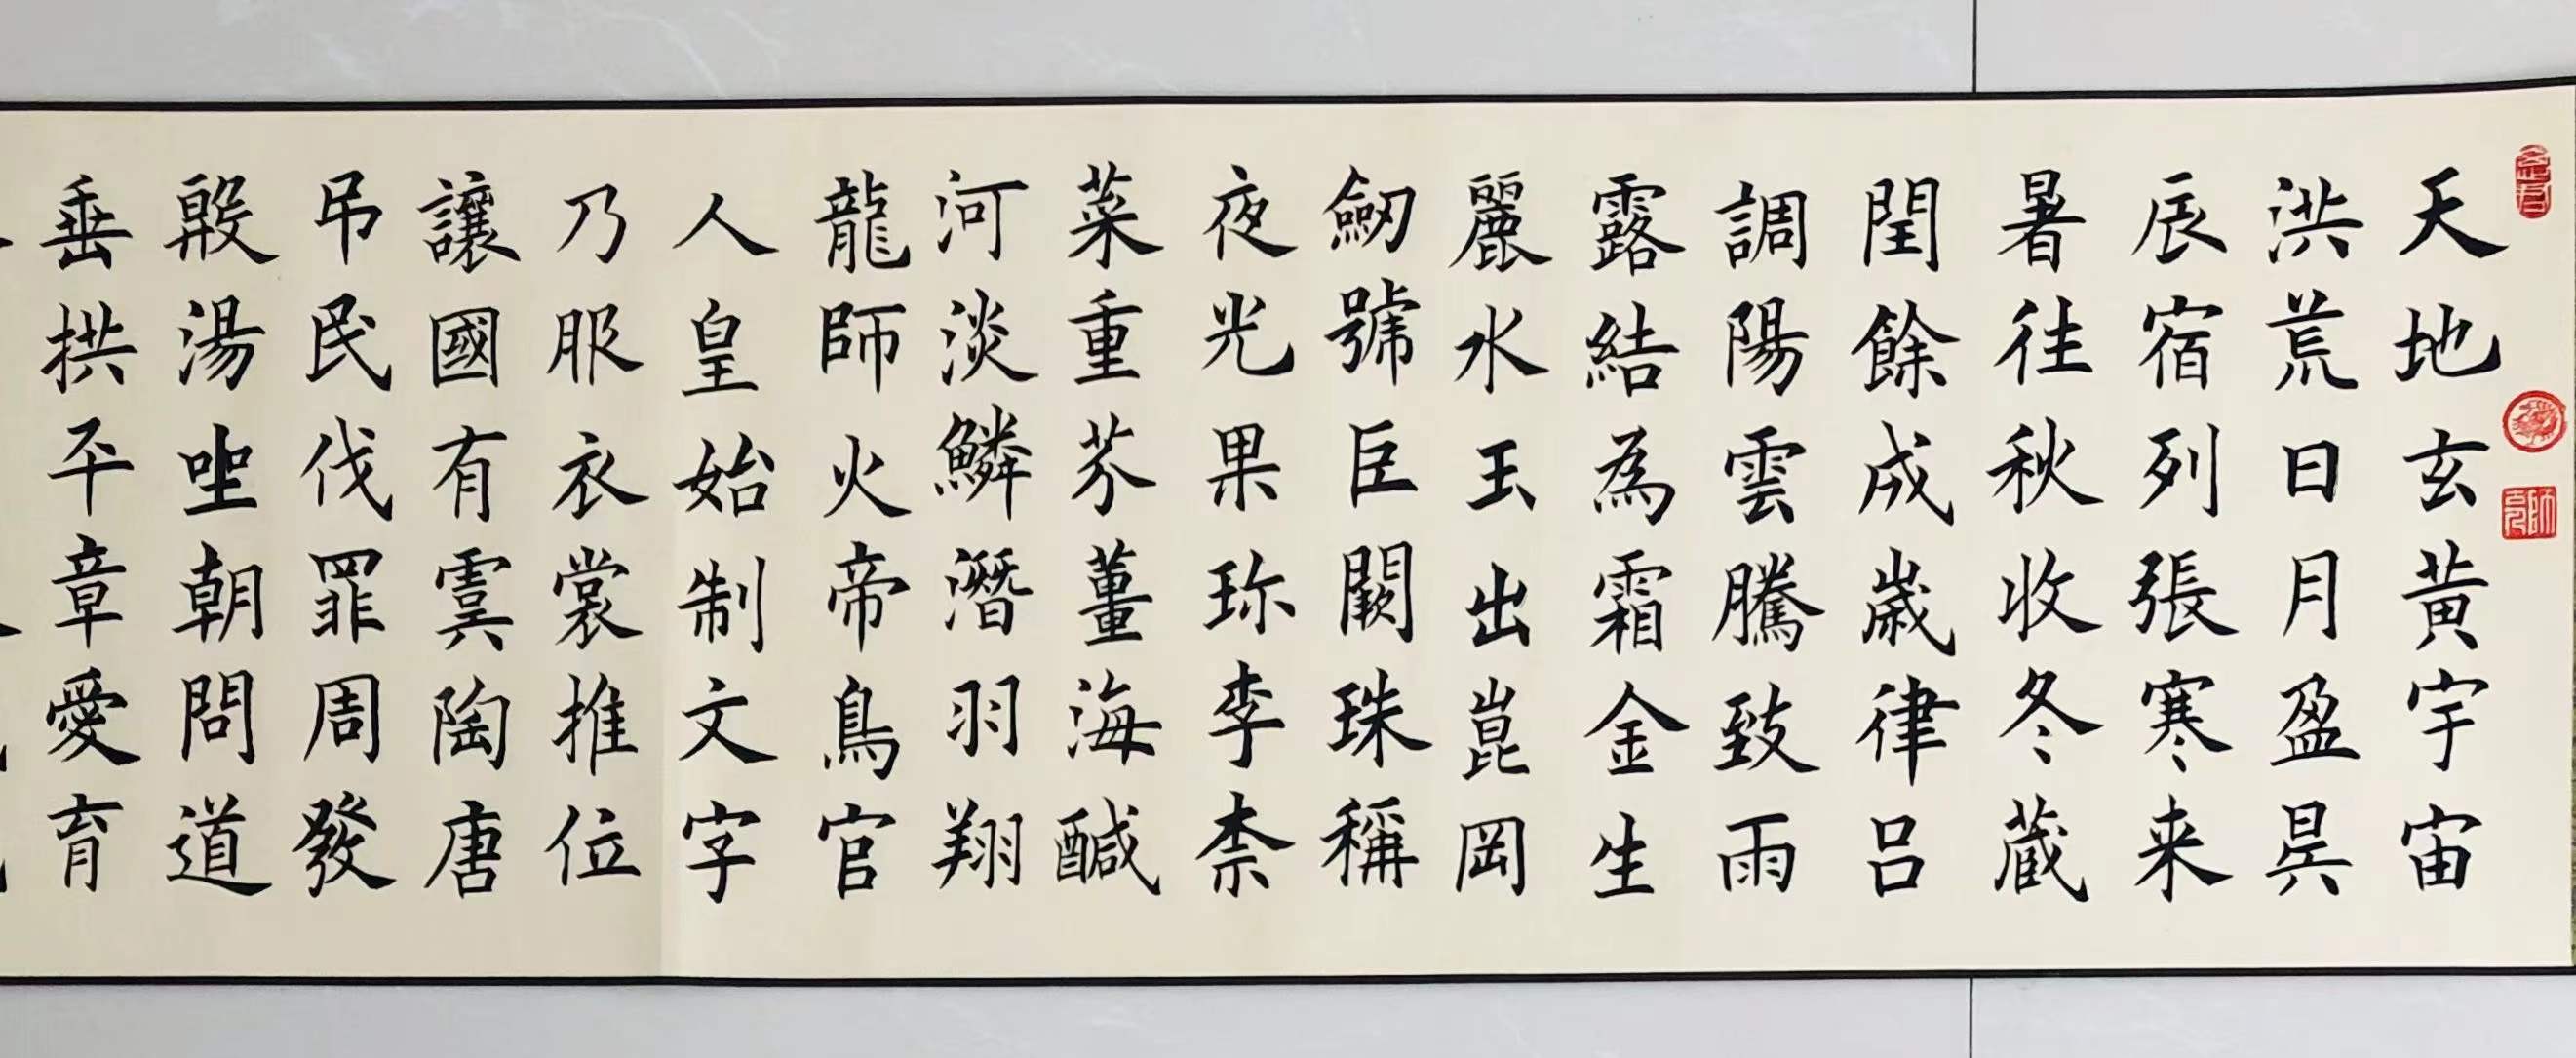 天地玄黃宇宙
洪荒日月盈昃
辰宿列張寒来
暑往秋收冬蔵
閏餘成歲律吕
調陽雲騰致雨
露結為霜金生
麗水玉出崑岡
劒號巨闕珠稱
夜光果珎李柰
菜重芥薑海醎
河淡鱗潛羽翔
龍師火帝鳥官
人皇始制文字
乃服衣裳推位
讓國有虞陶唐
吊民伐罪周發
殷湯坐朝問道
垂拱平章愛育